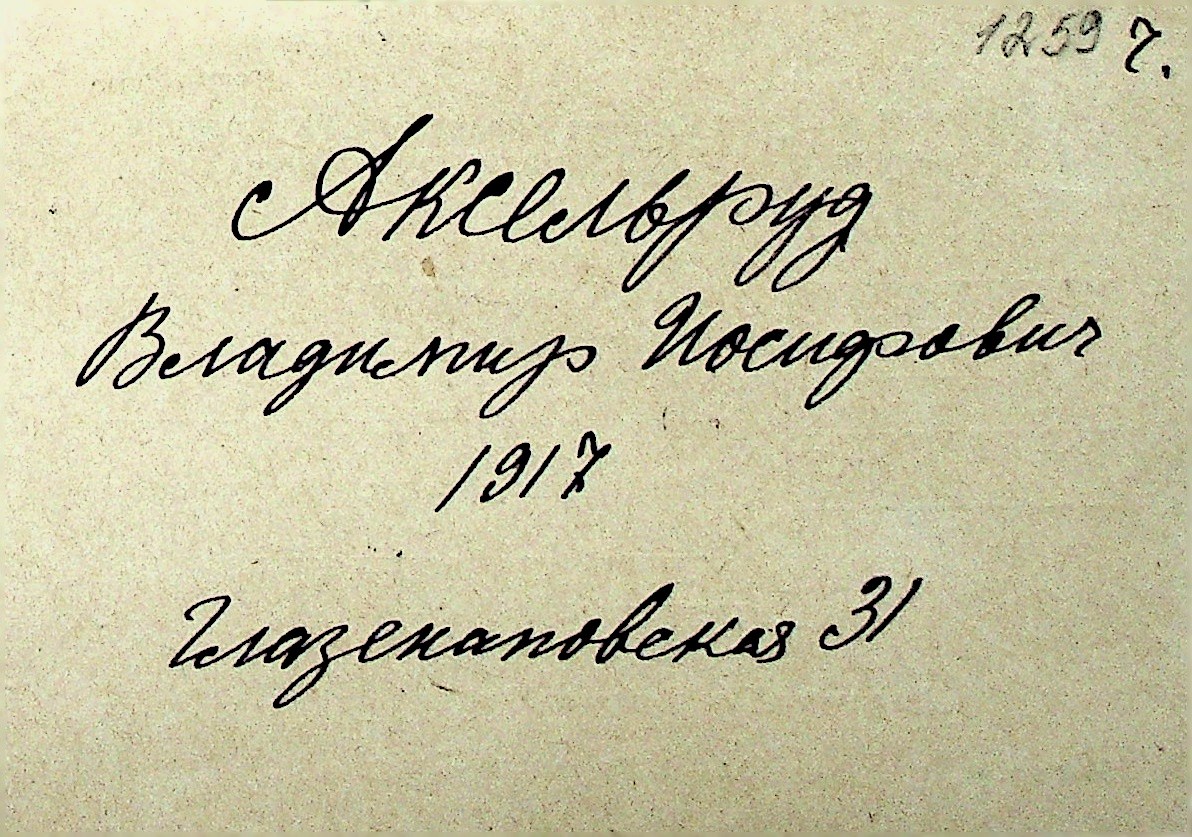 1259 7.
Аксельруд
Владимир Иосифович
1917
Глазенаповская 31